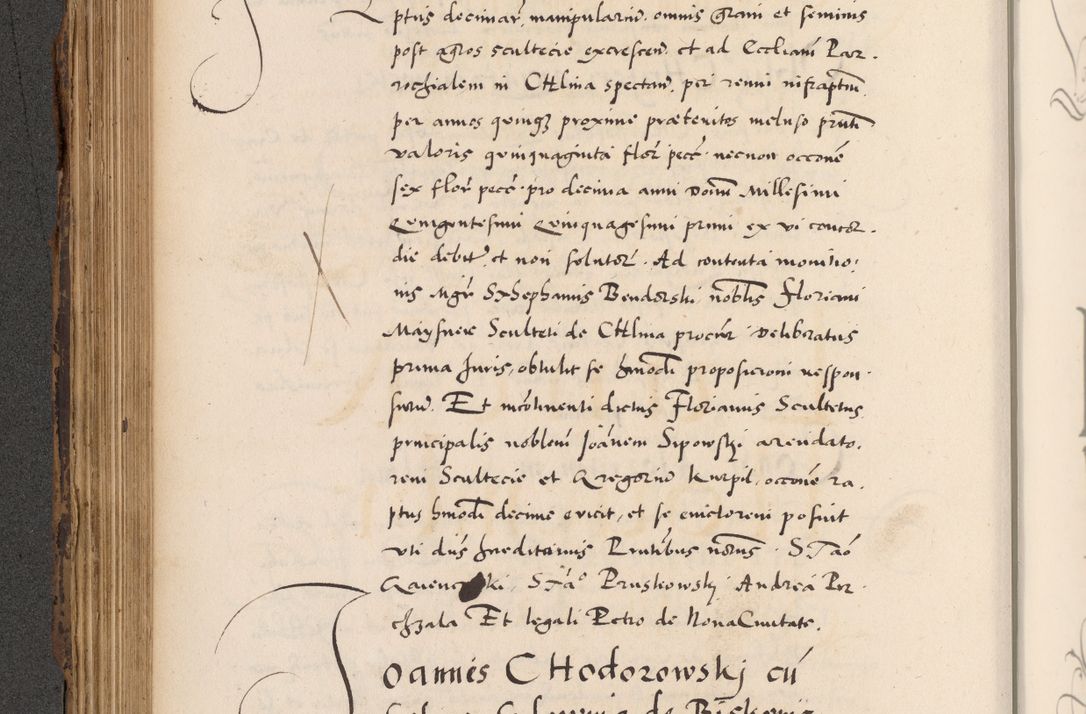 ptus decimar. manipulariu. omnis Grani et seminis
post agros scultecie excrescen. et ad Eccliam Par-
rochialem in CHlina spectan. per reum infraptum
per annos quinqz proxime præteritos incluso pnti
valoris quinquaginta flor. pecc. necnon occone
sex flor. pecc. pro decima anni Domi Millesimi
Quingentesimi Quinquagesimi primi ex vi concor-
die debit. et non solutor. Ad contenta monitio-
nis Mgr Stephanus Benderski nobilis Floriani
Sculteti de CHlina procur. Deliberatus
prima Juris, obtulit se hmodi proposicioni respon-
surum. Et incontinenti dictus Florianus Scultetus
principalis noblem Joannem Sipowski arendato-
rem Scultecie et Gregoriu Kurpil, occone ra-
ptus hmodi decime evicit, et se evictorem posuit
uti dus hereditarius Prntibus nobus. S Tao
Pruskowski Andrea Por-
chzala Et legali Petro de Nova Civitate.
Joannes CHodorowski cu